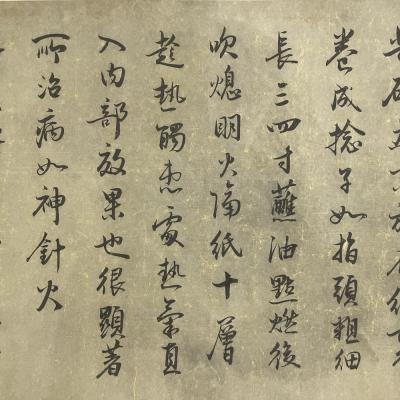 卷成捻子如指頭粗細
長三四寸蘸油點燃後
吹熄明火隔紙十層
趁熱觸患處熱氣直
入內部效果也很顯著
所治病如神針火